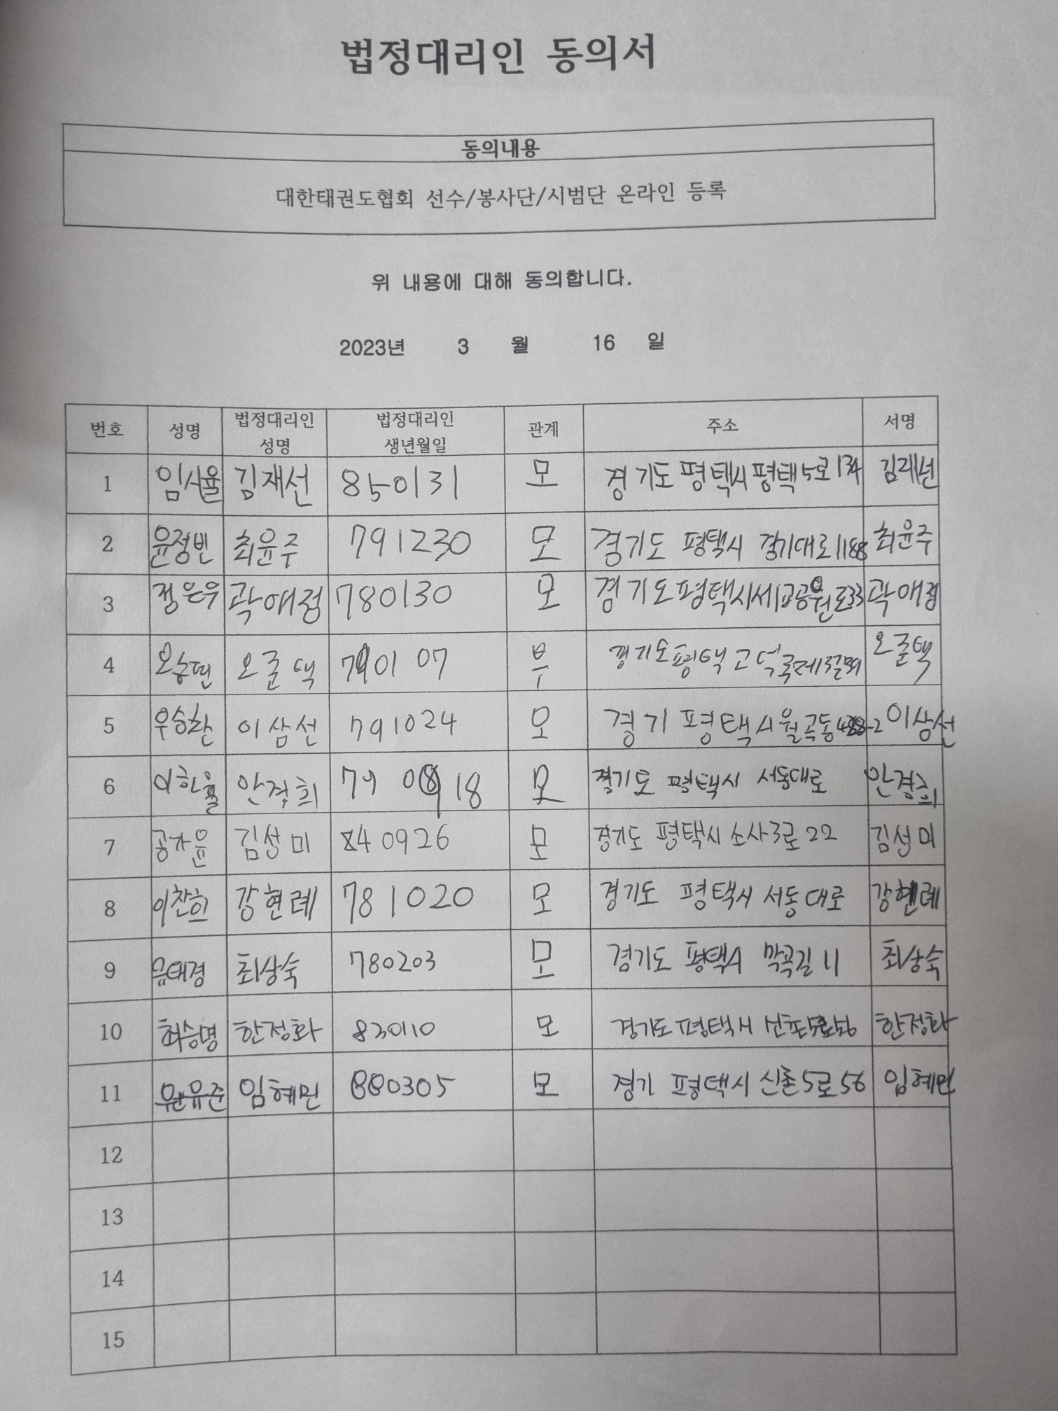 법정대리인 동의서
동의내용
대한태권도협회 선수/봉사단/시범단 온라인 등록
위 내용에 대해 동의합니다.
2023년 3 월 16 일
번호 성명 법정대리인 성명 법정대리인 생년월일 관계 주소 서명
1 임사율 김재선 850131 모 경기도 평택시 평택5로 134 김재선
2 윤정빈 최윤주 791230 모 경기도 평택시 경기대로1188 최윤주
3 정은우 곽애정 780130 모 경기도 평택시 곽애정
4 오준택 07 부 경기도 평택 고덕 오준택
5 우승환 이삼선 791024 모 경기 평택시 월곡동 이삼선
6 이하율 안경희 79 18 모 경기도 평택시 서동대로 안경희
7 공자윤 김성미 840926 모 경기도 평택시 소사3로 22 김성미
8 이찬희 강현례 781020 모 경기도 평택시 서동대로 강현례
9 유태경 최상숙 780203 모 경기도 평택시 막곡길 11 최상숙
10 최승명 한정화 830110 모 경기도 평택시 한정화
11 임혜민 880305 모 경기 평택시 신촌5로 56 임혜민
12
13
14
15